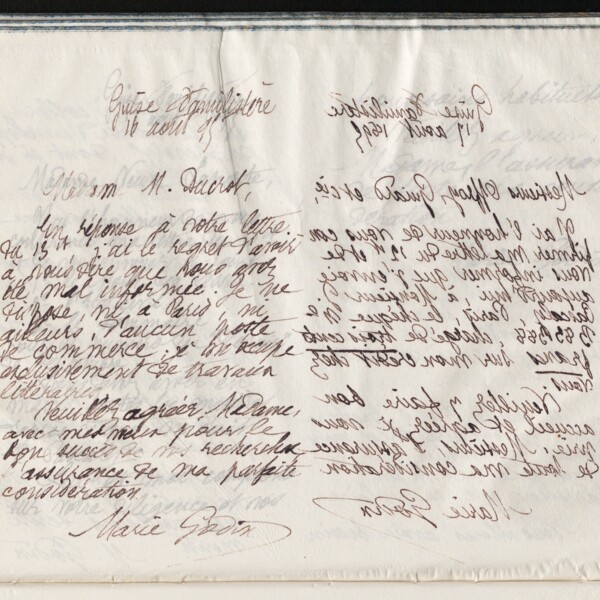 Guise Familistère
16 août 95
M. Ducrot,
En réponse à votre lettre
du 13 ct j'ai le regret d'avoir
à vous dire que vous avez
été mal informée. Je ne
dispose, ni à Paris, ni
ailleurs, d'aucun poste
de commerce; je m'occupe
exclusivement de travaux
littéraires.
Veuillez agréer, Madame,
avec mes vœux pour le
bon succès de vos recherches
l'assurance de ma parfaite
considération
Marie Godin
Guise Familistère
17 août 1895
Messieurs Offroy, Guiard et Cie,
J'ai l'honneur de vous con
firmer ma lettre du 12 ct et de
vous informer que j'envoie
aujourd'hui, à Monsieur
Paris, le chèque N°
chargé de trois cents
francs sur mon crédit chez
vous
Veuillez y faire bon
accueil et agréer, je vous
prie, Messieurs, l'assurance
de toute ma considération
Marie Godin